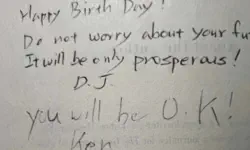 Happy Birth Day!
Do not worry about your fu
It will be only prosperous!
D.J.
you will be O.K!
Ken